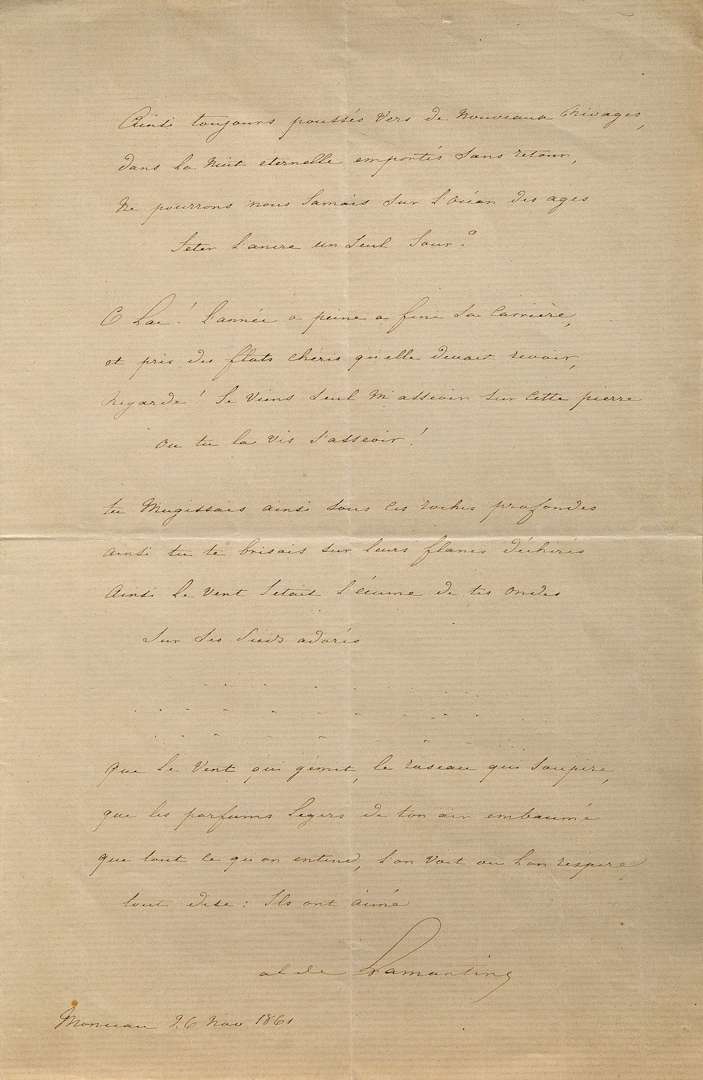 Ainsi toujours poussés vers de nouveaux Rivages,
dans la Nuit éternelle emportés sans retour,
Ne pourrons nous Jamais sur l'océan des ages
Jeter l'ancre un seul Jour?
O Lac! l'année a peine a fini sa Carrière,
et près des flots chéris qu'elle devait revoir,
Regarde! Je viens seul m'asseoir sur cette pierre
ou tu la vis s'asseoir!
tu Mugissais ainsi sous ces roches profondes
ainsi tu te brisais sur leurs flancs déchirés
Ainsi le vent Jetait l'écume de tes ondes
Sur Ses pieds adorés
que le Vent qui gémit, le roseau qui soupire,
que les parfums légers de ton air embaumé
que tout ce qu'on entend, l'on voit ou l'on respire
tout dise: Ils ont aimé
al de Lamartine
Monceau 26 Nov 1861